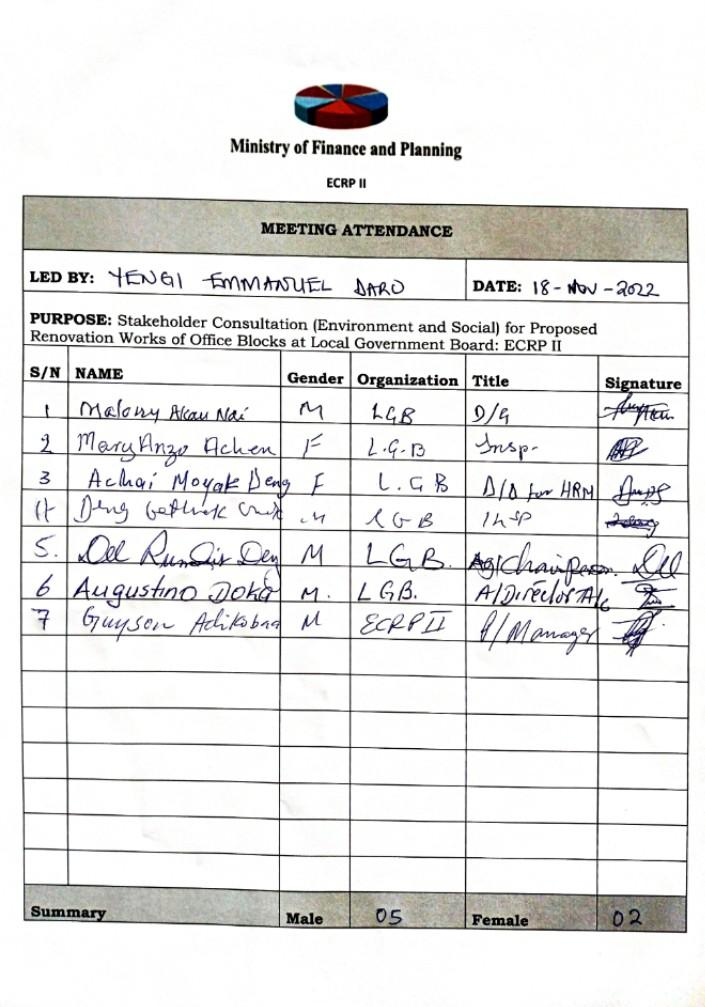 Ministry of Finance and Planning
ECRP II
MEETING ATTENDANCE
LED BY: YENGI EMMANUEL DARO DATE: 18-NOV-2022
PURPOSE: Stakeholder Consultation (Environment and Social) for Proposed
Renovation Works of Office Blocks at Local Government Board: ECRP II
S/N NAME Gender Organization Title Signature
1 Malony Akau Nai M LGB D/G
2 Mary Anzo Achen F L.G.B Insp.
3 Achai Moyak Deng F L.G B D/D for HRM
4 Deng M LGB Insp
5. Del Deng M LGB. Ag/Chairperson
6 Augustino Doka M. LGB. A/Director
7 Guyson Adikobaa M ECRP II P/Manager
Summary Male 05 Female 02